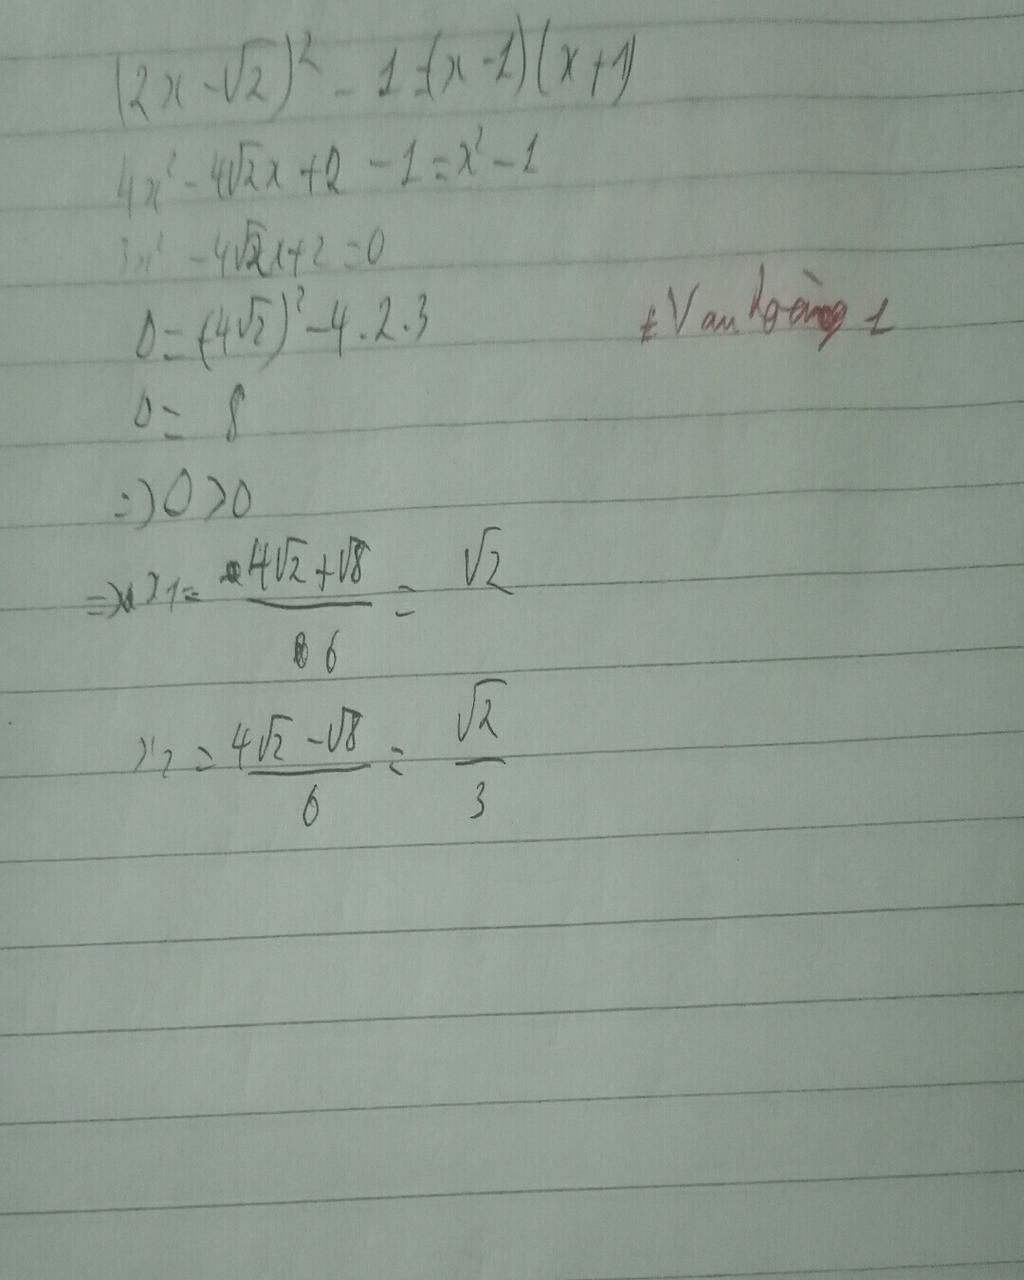 (2x - √2)² - 1 = (x - 1)(x + 1)
4x² - 4√2x + 2 - 1 = x² - 1
3x² - 4√2x + 2 = 0
Δ = (4√2)² - 4 . 2 . 3
Δ = 8
=> Δ > 0
=> x1 = (4√2 + √8) / 6 = √2
x2 = (4√2 - √8) / 6 = √2 / 3